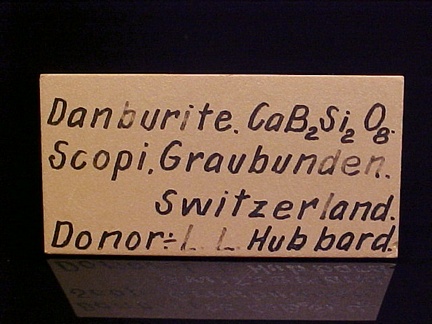 Danburite. CaB₂Si₂O₈.
Scopi, Graubunden.
Switzerland.
Donor:- L L Hubbard.